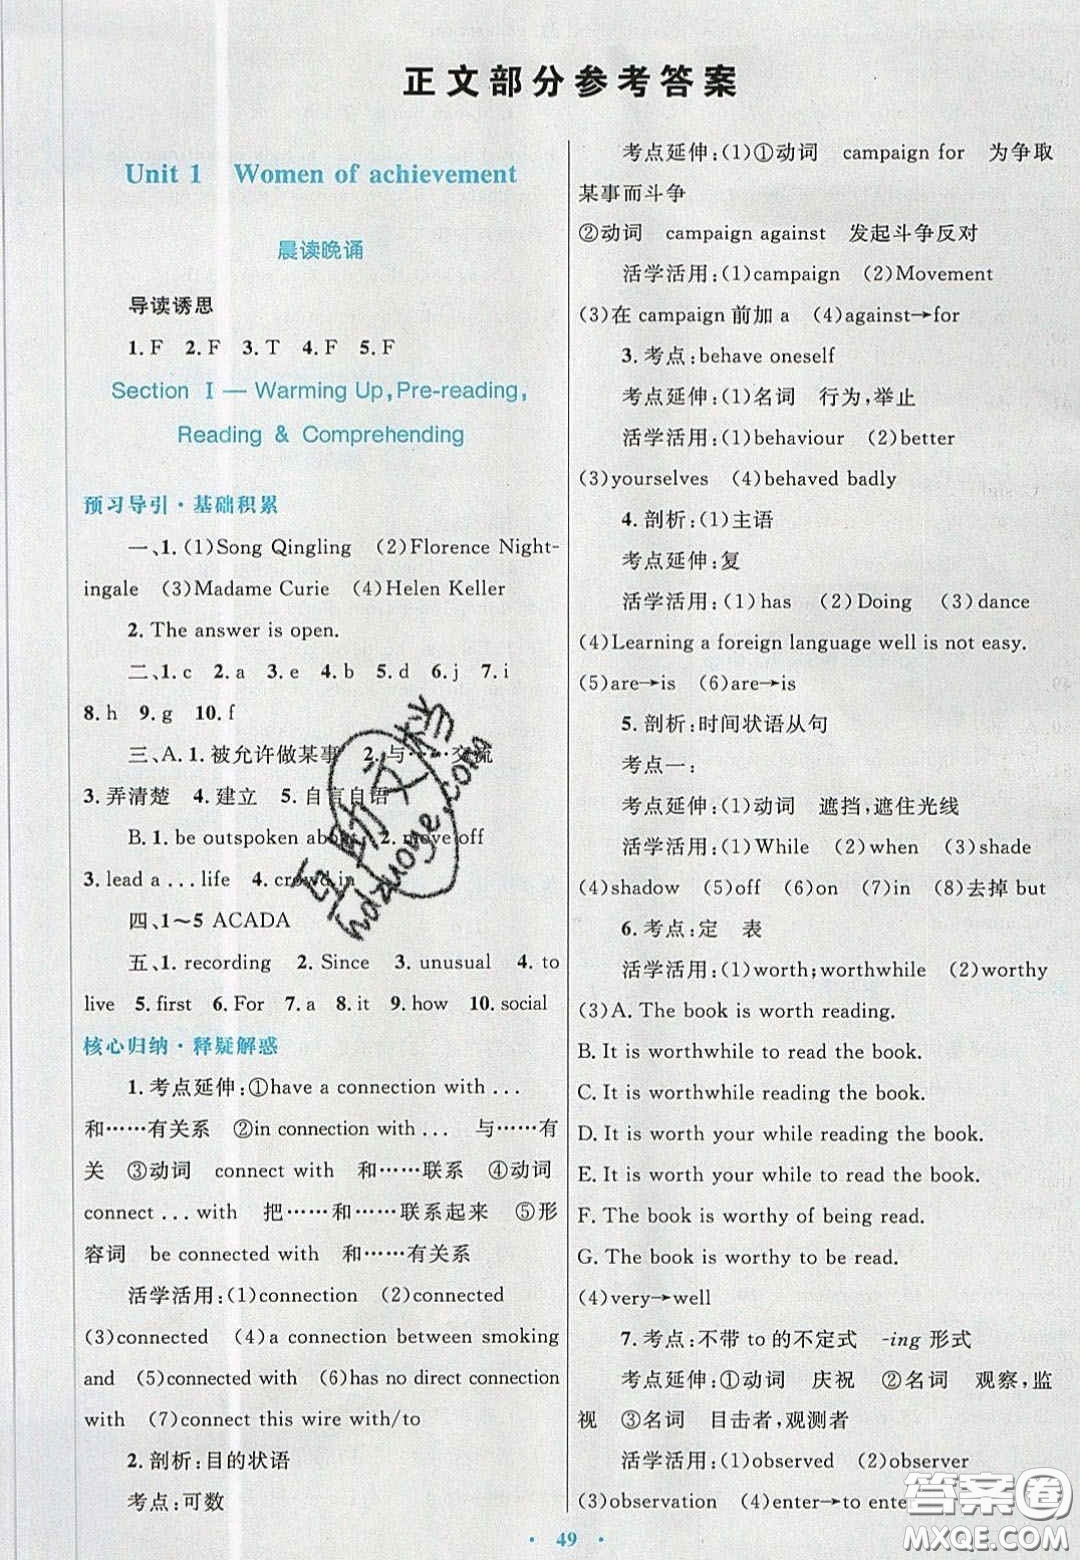 正文部分参考答案
Unit 1 Women of achievement
晨读晚诵
导读诱思
1. F 2. F 3. T 4. F 5. F
Section Ⅰ — Warming Up, Pre-reading,
Reading & Comprehending
预习导引·基础积累
一、1. (1)Song Qingling (2)Florence Night-
ingale (3)Madame Curie (4)Helen Keller
2. The answer is open.
二、1. c 2. a 3. e 4. b 5. d 6. j 7. i
8. h 9. g 10. f
三、A. 1. 被允许做某事 2. 与……交流
3. 弄清楚 4. 建立 5. 自言自语
B. 1. be outspoken about 2. move off
3. lead a ... life 4. crowd in
四、1～5 ACADA
五、1. recording 2. Since 3. unusual 4. to
live 5. first 6. For 7. a 8. it 9. how 10. social
核心归纳·释疑解惑
1. 考点延伸:①have a connection with ...
和……有关系 ②in connection with ... 与……有
关 ③动词 connect with 和……联系 ④动词
connect ... with 把……和……联系起来 ⑤形
容词 be connected with 和……有关系
活学活用:(1)connection (2)connected
(3)connected (4)a connection between smoking
and (5)connected with (6)has no direct connection
with (7)connect this wire with/to
2. 剖析:目的状语
考点:可数
考点延伸:(1)①动词 campaign for 为争取
某事而斗争
②动词 campaign against 发起斗争反对
活学活用:(1)campaign (2)Movement
(3)在 campaign 前加 a (4)against→for
3. 考点:behave oneself
考点延伸:(1)名词 行为,举止
活学活用:(1)behaviour (2)better
(3)yourselves (4)behaved badly
4. 剖析:(1)主语
考点延伸:复
活学活用:(1)has (2)Doing (3)dance
(4)Learning a foreign language well is not easy.
(5)are→is (6)are→is
5. 剖析:时间状语从句
考点一:
考点延伸:(1)动词 遮挡,遮住光线
活学活用:(1)While (2)when (3)shade
(4)shadow (5)off (6)on (7)in (8)去掉 but
6. 考点:定 表
活学活用:(1)worth;worthwhile (2)worthy
(3)A. The book is worth reading.
B. It is worthwhile to read the book.
C. It is worthwhile reading the book.
D. It is worth your while reading the book.
E. It is worth your while to read the book.
F. The book is worthy of being read.
G. The book is worthy to be read.
(4)very→well
7. 考点:不带 to 的不定式 -ing 形式
考点延伸:①动词 庆祝 ②名词 观察,监
视 ③名词 目击者,观测者
活学活用:(1)observed (2)observer
(3)observation (4)enter→to ente
·49·
互助文档
hdzuoye.com
答案圈
MXQE.COM